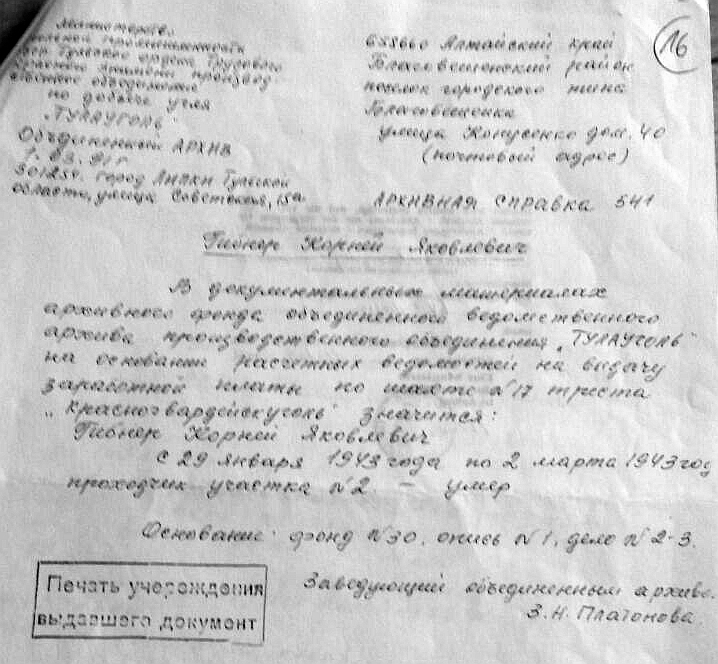 Министерство
угольной промышленности
СССР Тульское ордена Трудового
Красного Знамени производ-
ственное объединение
по добыче угля
"ТУЛАУГОЛЬ"
Объединенный АРХИВ
1. 03. 91 г
301254. город ЛИПКИ Тульской
области, улица Советская, 15а.
658660 Алтайский край
Благовещенский район
поселок городского типа
Благовещенка
улица Копусенко дом. 40
(почтовый адрес)
16
АРХИВНАЯ СПРАВКА 541
Гибнер Корней Яковлевич
В документальных материалах
архивного фонда объединенного ведомственного
архива производственного объединения "ТУЛАУГОЛЬ"
на основании расчетных ведомостей на выдачу
заработной платы по шахте №17 треста
"Красногвардейскуголь" значится:
Гибнер Корней Яковлевич
с 29 января 1943 года по 2 марта 1943 год
проходчик участка №2 – умер
Основание: фонд №30, опись №1, дело №2-3.
Заведующий объединенным архиво.
З.Н. Платонова.
Печать учереждения
выдавшего документ